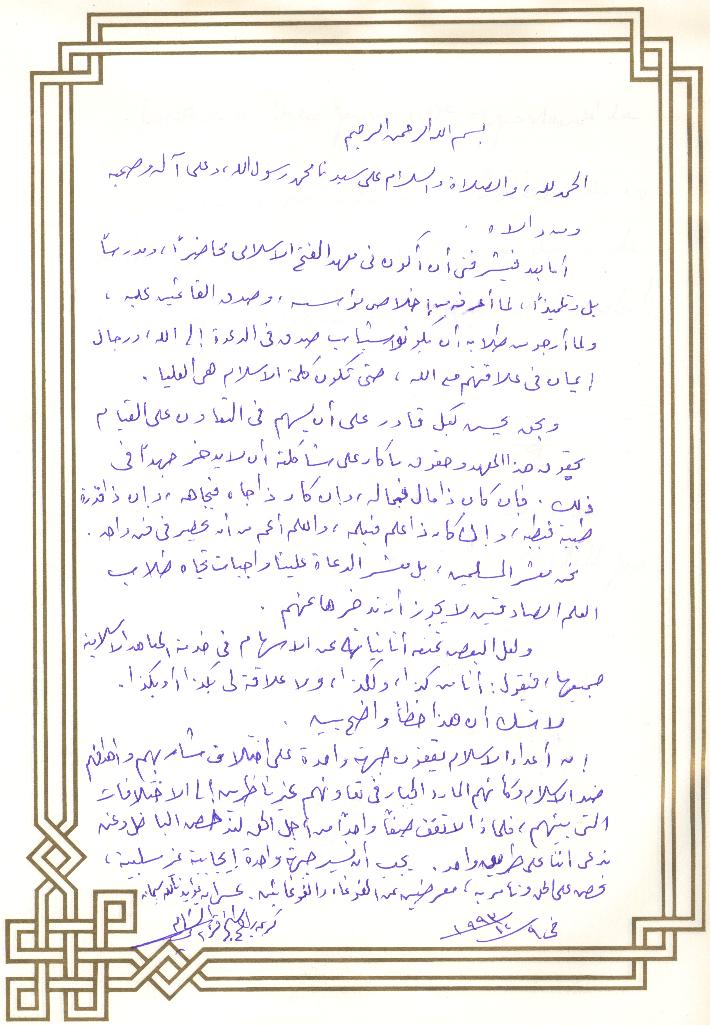 بسم الله الرحمن الرحيم
الحمد لله، والصلاة والسلام على سيدنا محمد رسول الله، وعلى آله وصحبه
ومن والاه .
أما بعد فيشرفني أن أكون في معهد الفتح الإسلامي محاضراً، ومدرساً
بل وتلميذاً، لما أعرفه من إخلاص مؤسسه، وصدق القائمين عليه،
ولما أرجو من طلابه أن يكونوا شباب صدق في الدعوة إلى الله، ورجال
إيمان في علاقتهم مع الله، حتى تكون كلمة الاسلام هي العليا .
ويحق يحسن لكل قادر على أن يسهم في التعاون على القيام
بحقوق هذا المعهد وحقوق ما كان على شاكلته أن لا يدخر جهداً في
ذلك . فإن كان ذا مال فبماله، وإن كان ذا جاه فبجاهه، وإن ذا قدرة
طبية فبطبه، وإن كان ذا علم فبعلمه، والعلم أعم من أن يحصر في فن واحد .
نحن معشر المسلمين، بل معشر الدعاة علينا واجبات تجاه طلاب
العلم الصادقين لا يجوز أن ندخرها عنهم .
ولعل البعض تمنعه أنانيته عن الاسهام في خدمة المعاهد الاسلامية
جميعها، فيقول: أنا من كذا، ولكذا، ولا علاقة لي بكذا أو بكذا.
لا شك أن هذا خطأ واضح بين .
إن أعداء الاسلام يقفون جبهة واحدة على اختلاف مشاربهم وأهدافهم
ضد الاسلام وكأنهم المارد الجبار في تعاونهم غير ناظرين إلى الاختلافات
التي بينهم، فلماذا لا نقف صفاً واحداً من أجل الحق لندحض الباطل ونحن
ندعي أننا على طريق واحد . يجب أن نسير جبهة واحدة إيجابية غير سلبية،
نحرص على الحق ونأمر به، معرضين عن الغوغاء والغوغائيين.
في ٩/١٢/١٩٩٣